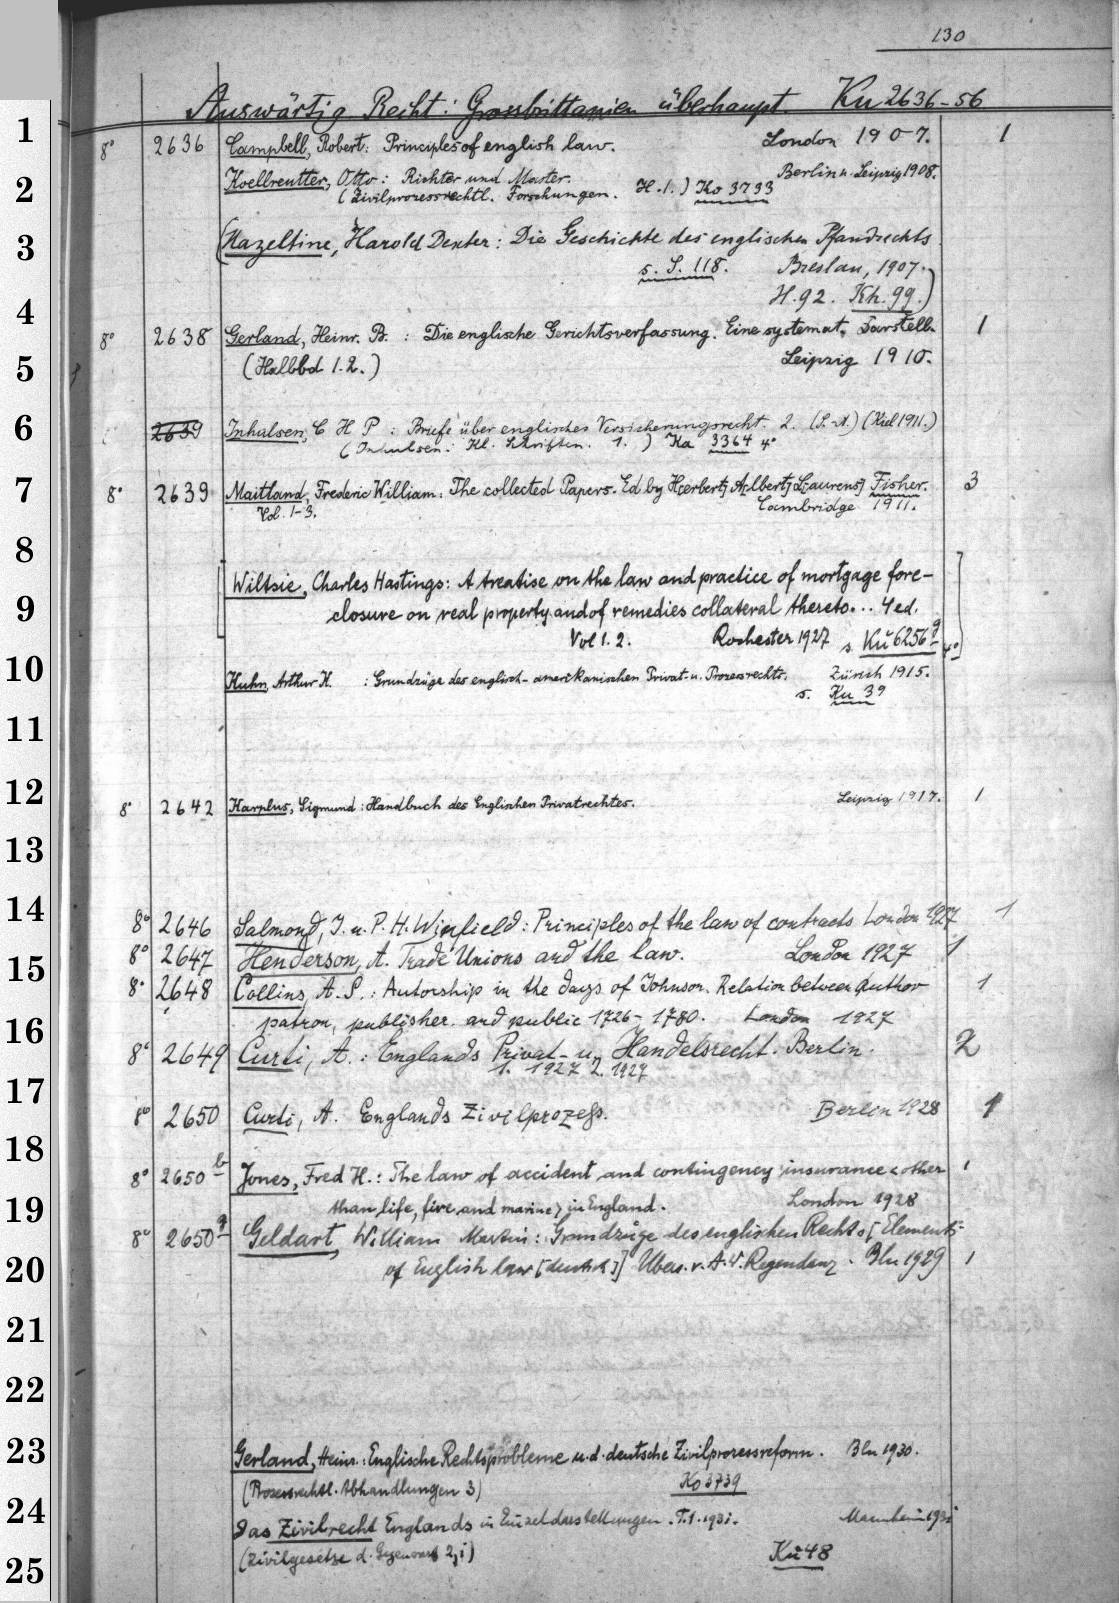 130
Auswärtig Recht: Grossbrittanien überhaupt. Ku 2636-56
1
8° 2636 Campbell, Robert: Principles of english law. London 1907. 1
2
Koellreutter, Otto: Richter und Master. Berlin u. Leipzig 1908.
(Zivilprozessrechtl. Forschungen. H.1.) Ko 3733
3
(Hazeltine, Harold Dexter: Die Geschichte des englischen Pfandrechts
s. S. 118. Breslau, 1907.
H. 92. Kh. 99.)
4
8° 2638 Gerland, Heinr. B. : Die englische Gerichtsverfassung. Eine systemat. Darstell. 1
5
(Halbbd 1.2.) Leipzig 1910.
6
2639 Inhulsen, C H P : Briefe über englisches Versicherungsrecht. 2. (S.-A.) (Kiel 1911.)
(Inhulsen: Kl. Schriften. 1. ) Ka 3364 4°
7
8° 2639 Maitland, Frederic William: The collected Papers. Ed by H[erbert] A[lbert] L[aurens] Fisher. 3
Vol. 1-3. Cambridge 1911.
8
[Wiltsie, Charles Hastings: A treatise on the law and practice of mortgage fore-
9
closure on real property and of remedies collateral thereto... 4 ed.
Vol 1. 2. Rochester 1927 s. Kü 6256 a 4°]
10
Kuhn, Arthur K. : Grundzüge des englisch-amerikanischen Privat- u. Prozessrechts. Zürich 1915.
s. Ku 39
11
12
8° 2642 Karplus, Sigmund: Handbuch des Englischen Privatrechtes. Leipzig 1917. 1
13
14
8° 2646 Salmond, J. u. P. H. Winfield: Principles of the law of contracts London 1927 1
15
8° 2647 Henderson, A. Trade Unions and the law. London 1927 1
8° 2648 Collins, A. S.: Autorship in the days of Johnson. Relation between author 1
16
patron, publisher and public 1726-1780. London 1927
8° 2649 Curti, A.: Englands Privat- u. Handelsrecht. Berlin. 2
1. 1927 2. 1927
17
8° 2650 Curti, A. Englands Zivilprozeß. Berlin 1928 1
18
8° 2650 b Jones, Fred H.: The law of accident and contingency insurance <other 1
19
than life, fire, and marine> in England. London 1928
8° 2650 a Geldart, William Martin: Grundzüge des englischen Rechts [Elements
20
of English law [deutsch]] Übers. v. A. W. Regendanz. Bln 1929 1
21
22
23
Gerland, Heinr.: Englische Rechtsprobleme u. d. deutsche Zivilprozessreform. Bln 1930.
(Prozessrechtl. Abhandlungen 3) Ko 3739
24
Das Zivilrecht Englands in Einzeldarstellungen. T.1. 1931. Mannheim 1931
25
(Zivilgesetze d. Gegenwart 2,1) Kü 48